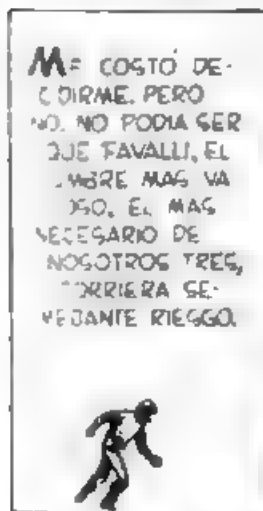 ME COSTÓ DE-
CIDIRME. PERO
NO. NO PODIA SER
QUE FAVALLI, EL
HOMBRE MAS VA
LIOSO, EL MAS
NECESARIO DE
NOSOTROS TRES,
CORRIERA SE-
MEJANTE RIESGO.